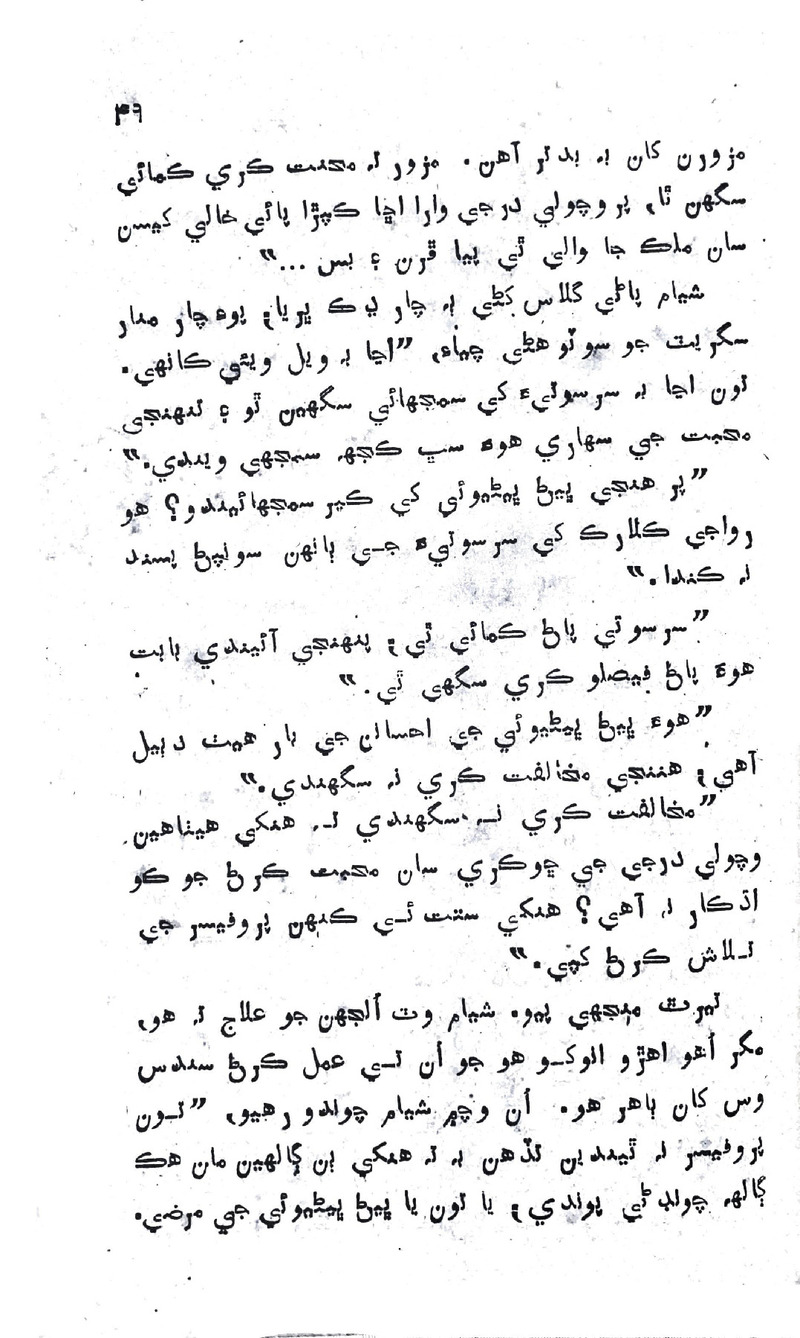 ۴۶
مزورن کان بہ بدتر آهن. مزور تہ محنت ڪري ڪمائي
سگهن ٿا، پر وچولي درجي وارا اڇا ڪپڙا پائي خالي کيسن
سان ملڪ جا والي ٿي پيا ڦرن ۽ بس ...“
شيام پاڻي گلاس کڻي بہ چار ڍڪ ڀريا، پوءِ چار مدار
سگريٽ جو سوٽو هڻي چيائ، ”اڃا بہ ويل ويئي ڪانهي.
تون اڃا بہ سرسوتيءَ کي سمجهائي سگهين ٿو ۽ تنهنجي
محبت جي سهاري هوءَ سڀ ڪجهہ سمجهي ويندي.“
”پر هنجي ڀيڻ ڀيڻيوئي کي ڪير سمجهائيندو؟ هو
رواجي ڪلارڪ کي سرسوتيءَ جي ٻانهن سونپڻ پسند
نہ ڪندا.“
”سرسوتي پاڻ ڪمائي ٿي، پنهنجي آئيندي بابت
هوءَ پاڻ فيصلو ڪري سگهي ٿي.“
”هوءَ ڀيڻ ڀيڻيوئي جي احسانن جي بار هيٺ دٻيل
آهي، هننجي مخالفت ڪري نہ سگهندي.“
”مخالفت ڪري نہ سگهندي تہ هنکي هيئاهين
وچولي درجي جي ڇوڪري سان محبت ڪرڻ جو ڪو
اڌڪار نہ آهي؟ هنکي سٺت ئي ڪنهن پروفيسر جي
تلاش ڪرڻ کپي.“
تيرٿ منجهي پيو. شيام وٽ اُلجهن جو علاج تہ هو،
مگر اُهو اهڙو انوکو هو جو اُن تي عمل ڪرڻ سندس
وس کان ٻاهر هو. اُن وچ۾ شيام چوندو رهيو، ”تون
پروفيسر نہ ٿيندين تڏهن بہ تہ هنکي ٻن ڳالهين مان هڪ
ڳالهہ چونڊڻي پوندي، يا تون يا ڀيڻ ڀيڻيوئي جي مرضي.